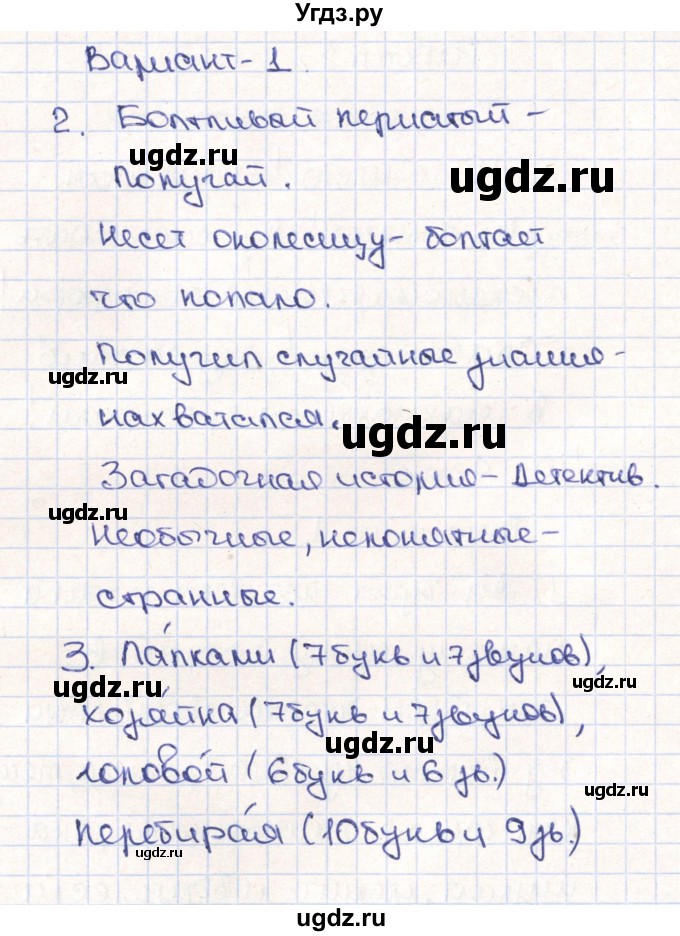 Угдз.ру
Вариант-1.
2. Болтливый пернатый -
ugdz.ru
ugdz.ru
Попугай.
Несет околесицу- болтает
что попало.
Получил случайные знания-
ugdz.ru
нахватался.
ugdz.ru
Загадочная история- Детектив.
ugdz.ru
Необычные, непонятные-
странные.
3. Ла́пками (7букв и 7звуков),
ugdz.ru
ugdz.ru
хозя́йка (7букв и 7звуков),
ugdz.ru
головой (6букв и 6 зв.)
ugdz.ru
перебира́я (10букв и 9зв.)
ugdz.ru
ugdz.ru